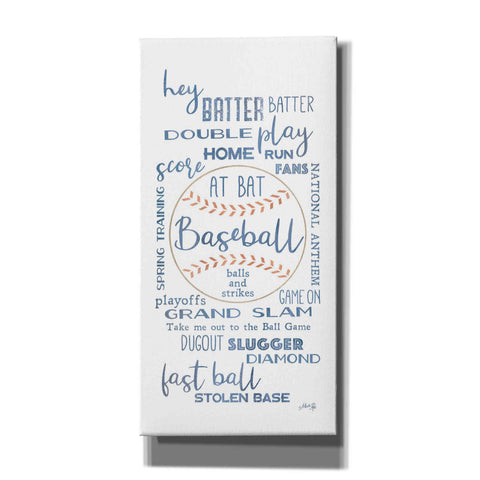 hey
BATTER BATTER
DOUBLE play
HOME RUN
score FANS
SPRING TRAINING
NATIONAL ANTHEM
AT BAT
Baseball
balls
and
strikes
playoffs GAME ON
GRAND SLAM
Take me out to the Ball Game
DUGOUT SLUGGER
DIAMOND
fast ball
STOLEN BASE